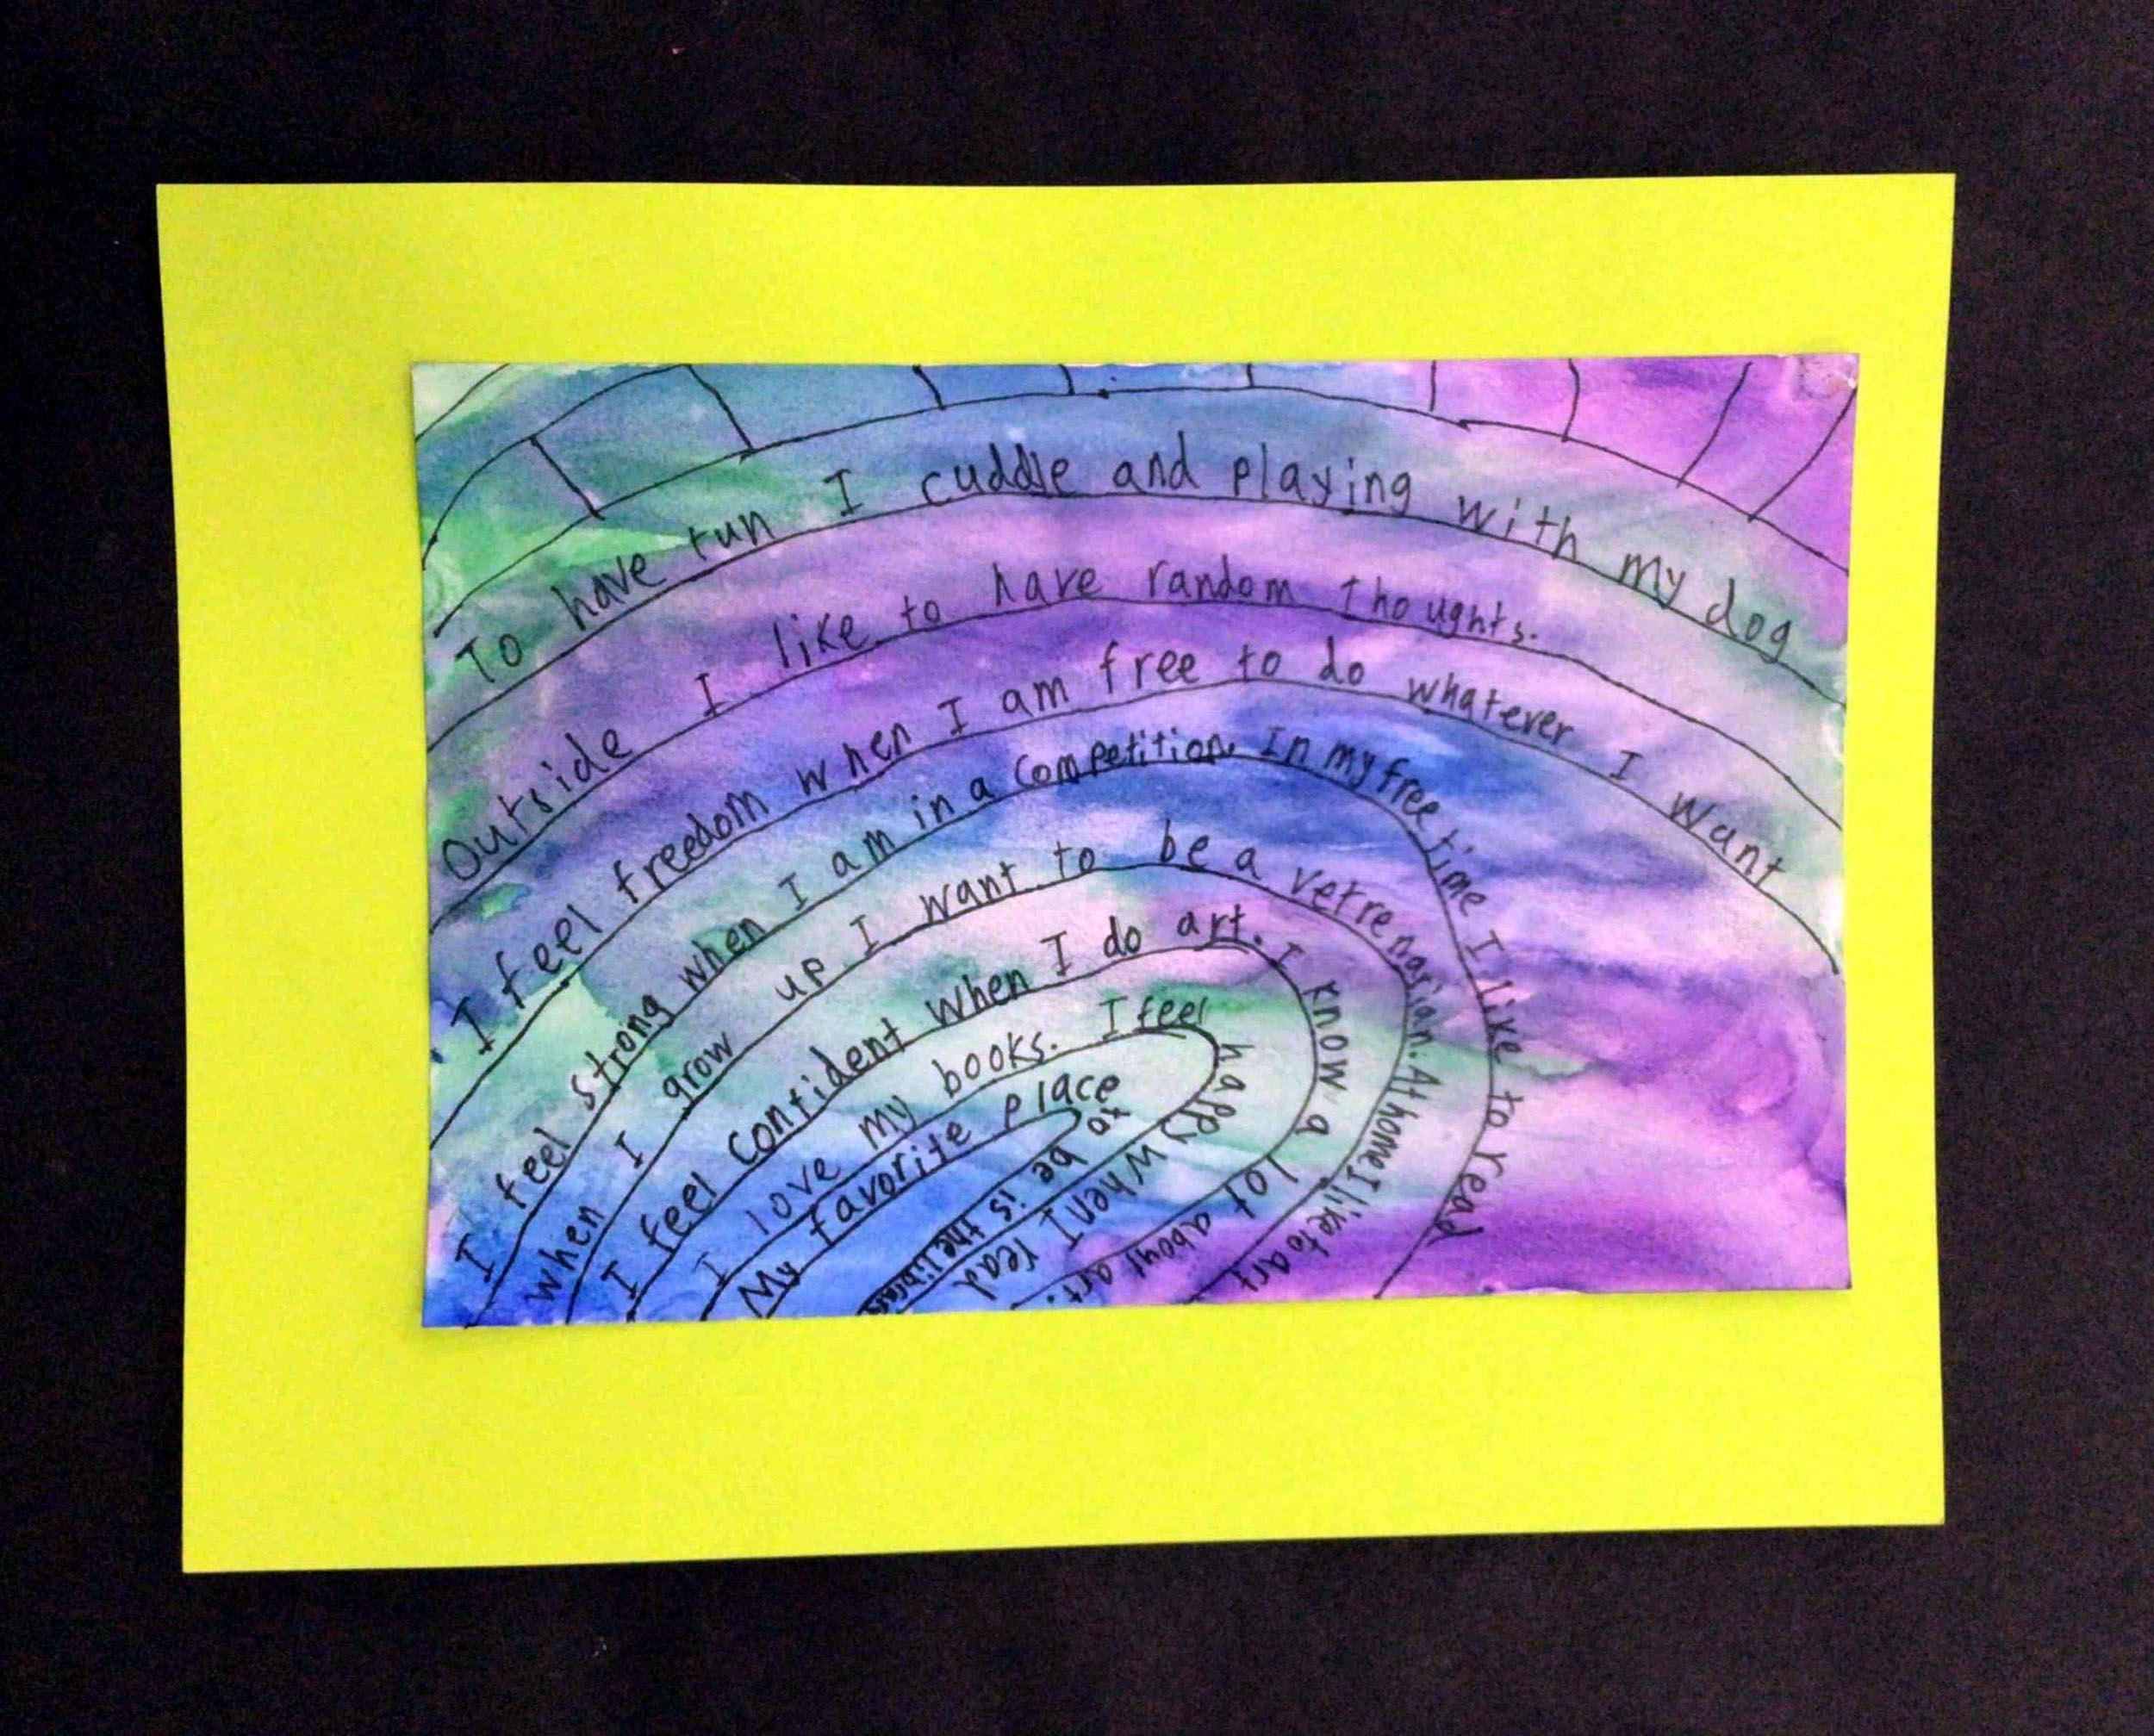 To have fun I cuddle and playing with my dog
Outside I like to have random thoughts.
I feel freedom when I am free to do whatever I want
I feel strong when I am in a competition. In my free time I like to read
when I grow up I want to be a vetrenarian. At home I like to art
I feel confident when I do art. I know a lot about art.
I love my books. I feel happy when I read
My favorite place to be is the library